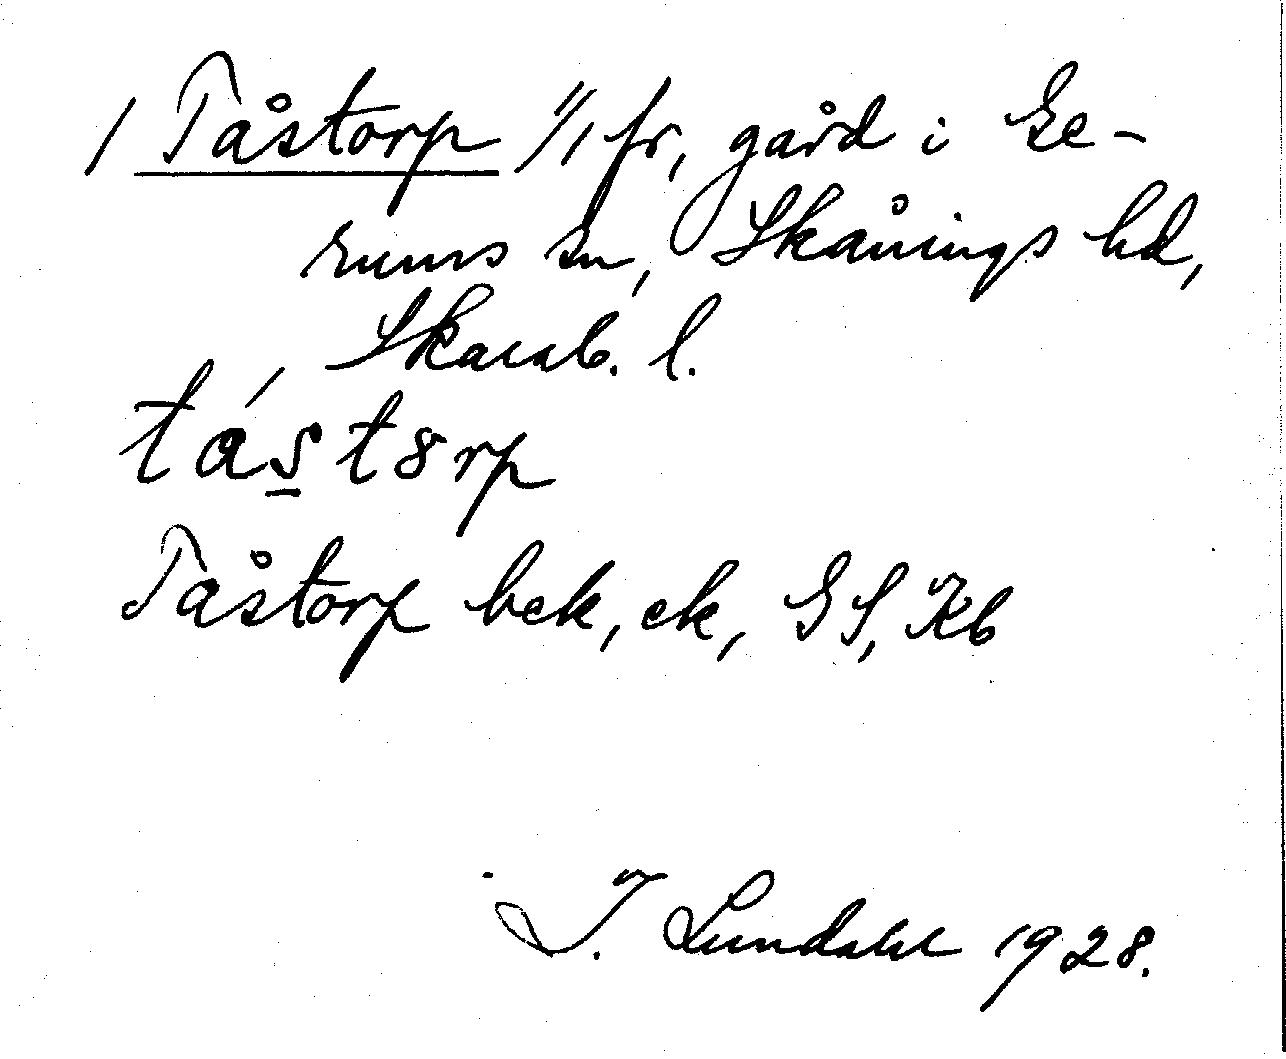 1 Tåstorp 1/1 fr, gård i Ge-
rums sn, Skånings hd,
Skarab. l.
tást8rp
Tåstorp bek, ek, GS, Kb
I. Lundahl 1928.